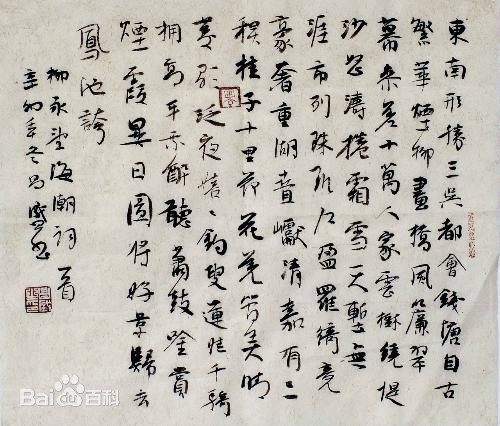 東南形勝三吳都會錢塘自古
繁華煙柳畫橋風簾翠
幕參差十萬人家雲樹繞堤
沙怒濤捲霜雪天塹無
涯市列珠璣戶盈羅綺競
豪奢重湖疊巘清嘉有三
秋桂子十里荷花羌管弄晴
菱歌泛夜嬉々釣叟蓮娃千騎
擁高牙乘醉聽蕭鼓吟賞
煙霞異日圖將好景歸去
鳳池誇
柳永望海潮詞一首
辛卯年冬昌盛書
Bai百科